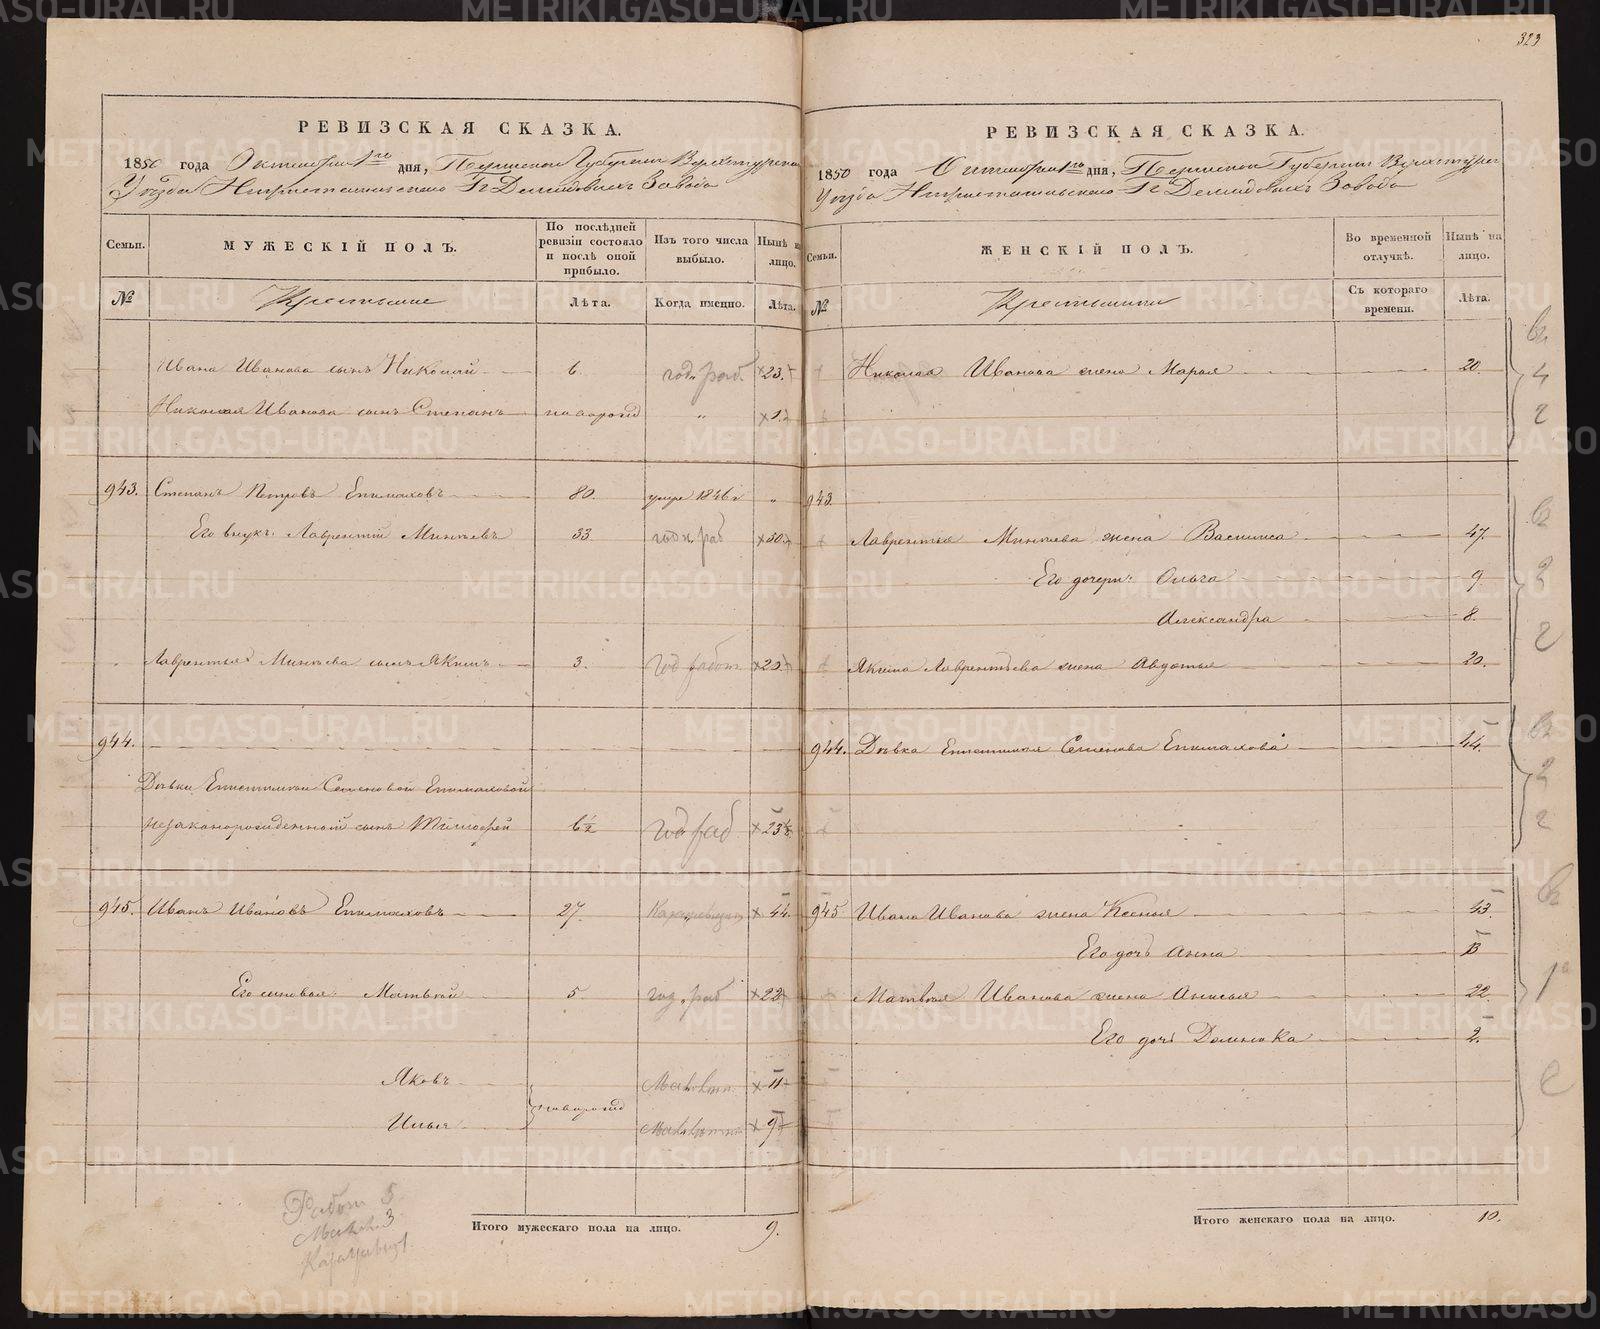 323
РЕВИЗСКАЯ СКАЗКА.
1850 года Октября 1го дня, Пермской Губернии Верхотурска
Уѣзда Нижнетагильскаго Гг Демидовыхъ Завода
Семьи. МУЖЕСКІЙ ПОЛЪ. По послѣдней ревизіи состояло и послѣ оной прибыло. Изъ того числа выбыло. Нынѣ на лицо.
№ Крестьяне Лѣта. Когда именно. Лѣта.
Ивана Иванова сынъ Николай 6. год. раб. 23.
Николая Иванова сынъ Степанъ новорожд " 1.
943. Степанъ Петровъ Епимаховъ 80. умре 1846 "
Его внукъ: Лаврентій Минѣевъ 33 годн. раб 50.
Лаврентья Минѣева сынъ Якимъ 3. год работ 20.
944.
Дѣвки Епистиміи Семеновой Епимаховой
незаконорожденный сынъ Тимофей 6½ год раб 23½
945. Иванъ Ивановъ Епимаховъ 27. Караульщик 44.
Его сыновья: Матвѣй 5. год. раб 22
Яковъ новорожд 11
Илья 9
Работ 5
3
1.
Итого мужескаго пола на лицо. 9.
РЕВИЗСКАЯ СКАЗКА.
1850 года Октября 1го дня, Пермской Губерніи Верхотурс
Уѣзда Нижнетагильскаго Гг Демидовыхъ Завода
Семьи. ЖЕНСКІЙ ПОЛЪ. Во временной отлучкѣ. Нынѣ на лицо.
№ Крестьянки Съ котораго времени. Лѣта.
Николая Иванова жена Марья 20.
943.
Лаврентья Минѣева жена Василиса 47.
Его дочери: Ольга 9.
Александра 8.
Якима Лаврентьева жена Авдотья 20.
944. Дѣвка Епистимія Семенова Епимахова 44.
945 Ивана Иванова жена Ксенья 43.
Его дочь Анна 13
Матвѣя Иванова жена Анисья 22.
Его дочь Домника 2.
Итого женскаго пола на лицо. 10.
METRIKI.GASO-URAL.RU